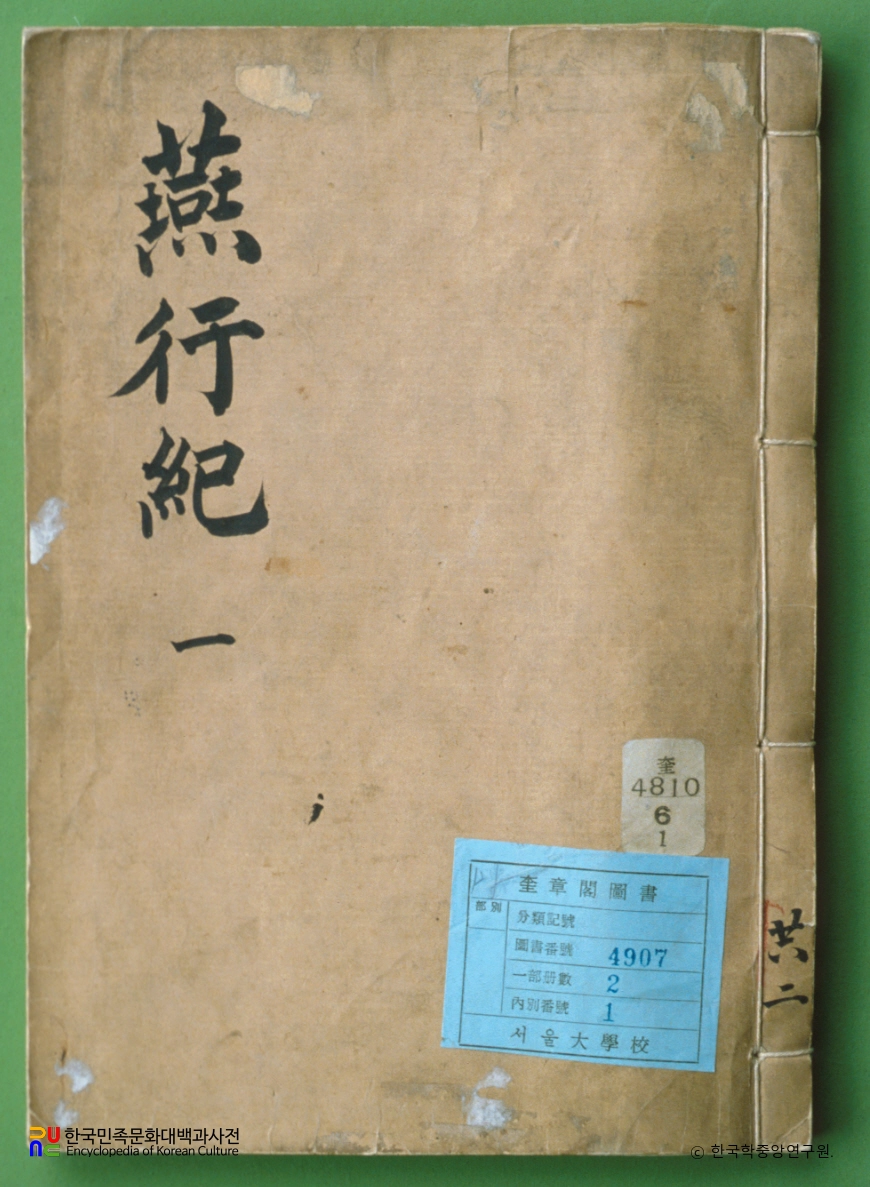 燕行紀
一
奎
4810
6
1
奎章閣圖書
部別
分類記號
圖書番號 4907
一部册數 2
內別番號 1
서울大學校
共二
한국민족문화대백과사전
Encyclopedia of Korean Culture
© 한국학중앙연구원.